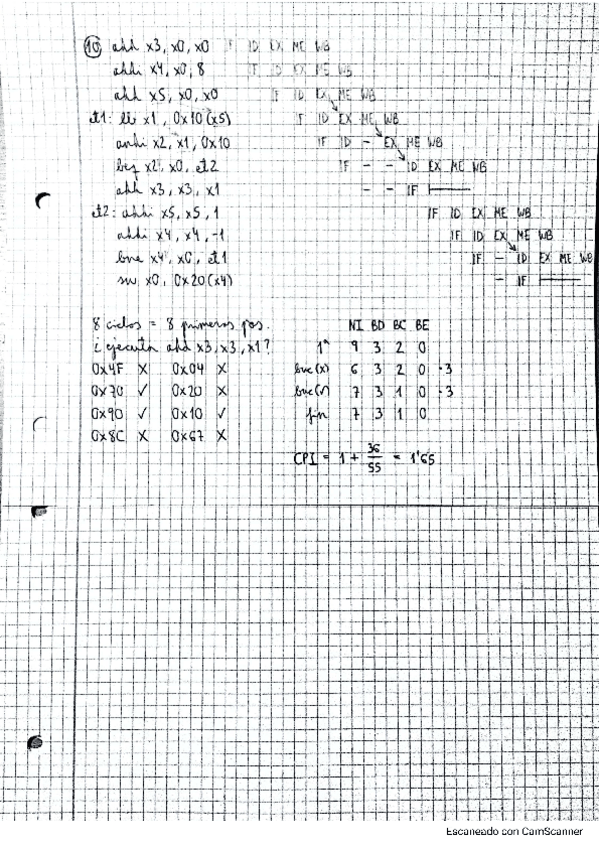 10 add x3, x0, x0 IF ID EX ME WB
addi x4, x0, 8 IF ID EX ME WB
add x5, x0, x0 IF ID EX ME WB
et1: lb x1, 0x10(x5) IF ID EX ME WB
andi x2, x1, 0x10 IF ID - EX ME WB
beq x2, x0, et2 IF - - ID EX ME WB
add x3, x3, x1 - - IF
et2: addi x5, x5, 1 IF ID EX ME WB
addi x4, x4, -1 IF ID EX ME WB
bne x4, x0, et1 IF - ID EX ME WB
sw x0, 0x20(x4) - IF
8 ciclos = 8 primeras pos. NI BD BC BE
¿ejecuta add x3,x3,x1? 1ª 9 3 2 0
0x4F X 0x04 X buc(x) 6 3 2 0 ·3
0x70 ✓ 0x20 X buc(✓) 7 3 1 0 ·3
0x90 ✓ 0x10 ✓ fin 7 3 1 0
0x8C X 0x67 X
CPI = 1 + 36/55 = 1'65
Escaneado con CamScanner